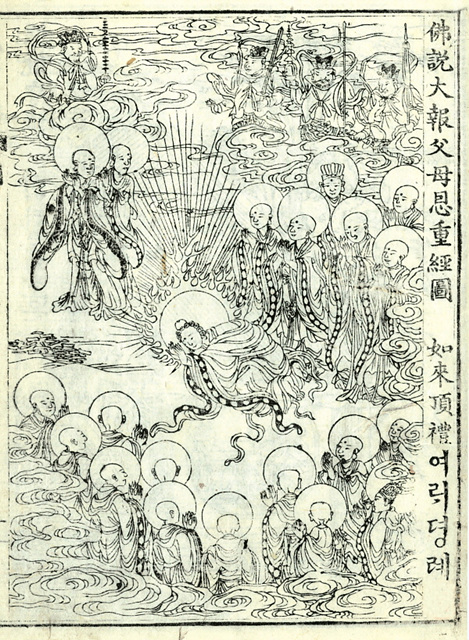 佛說大報父母恩重經圖 如來頂禮여ᄅᆡ뎡례